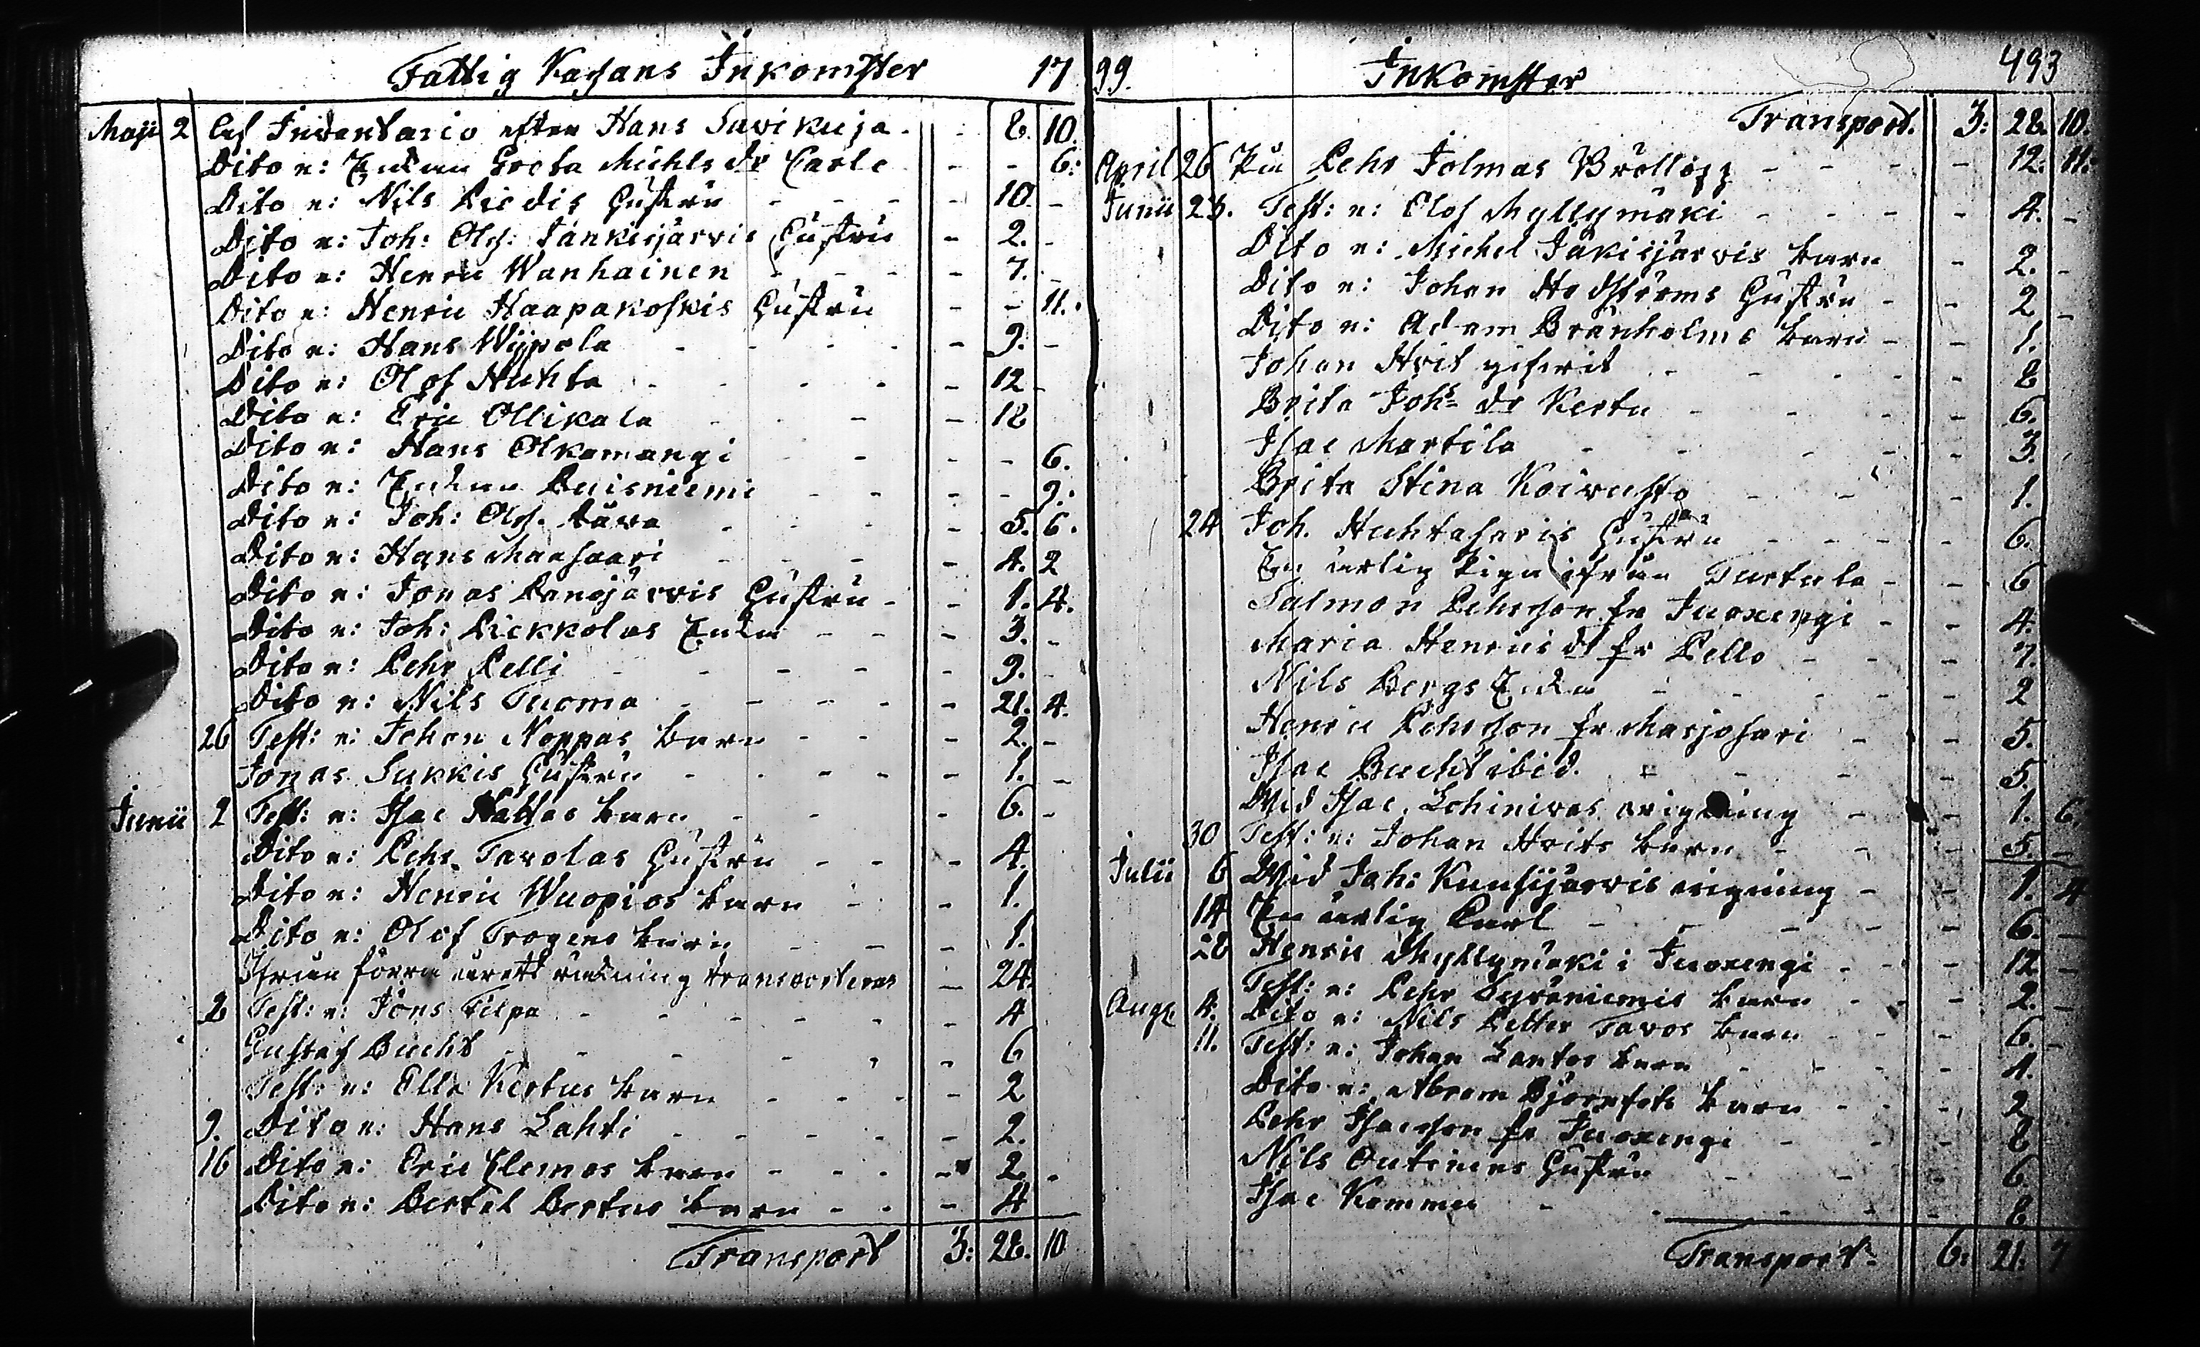 Fattig Kassans Inkomster 17
Maji 2 Af Inventario efter Hans Savikuja - 8. 10.
Dito e: Enkan Greta Michls dr Carle - - 6:
Dito e: Nils Liedis Hustru - 10. -
Dito e: Joh: Olofs: Jankisjärvis Hustru - 2. -
Dito e: Henric Wanhainen - 7. -
Dito e: Henric Haapakoskis Hustru - - 11.
Dito e: Hans Wijpola - 9. -
Dito e: Olof Huhta - 12 -
Dito e: Eric Ollikala - 18
Dito e: Hans Olkamangi - - 6.
Dito e: Enkan Ruisniemi - - 9.
Dito e: Joh: Olofs. - 5. 6.
Dito e: Hans Maasaari - 4. 2
Dito e: Jonas Hustru - - 1. 4.
Dito e: Joh: Lickkolas Enka - 3. -
Dito e: Pehr Pelli - 9. -
Dito e: Nils Tuoma - 21. 4.
26 Test: e: Johan Noppas barn - 2. -
Jonas Sukkis Hustru - 1. -
Junii 2 Test: e: Isac barn - 6. -
Dito e: Pehr Tavolas Hustru - 4.
Dito e: Henric Wuopios barn - 1.
Dito e: Olof Trogens barn - 1.
Ifrån förra årets räkning transporteras - 24.
2 Test: e: Jöns Filpa - 4
Gustaf Bucht - 6
Test: e: Ells Kertus barn - 2
9. Dito e: Hans Lahti - 2.
16 Dito e: Eric Clemos barn - 2. -
Dito e: Bertel Bertus barn - 4
Transport 3: 28. 10
99. Inkomster 493
Transport. 3: 28. 10.
April 26 På Pehr Jolmas Bröllopp - 12. 11.
Junii 23. Test: e: Olof Myllymäki - 4. -
Dito e: Michel Jäkisjärvis barn - 2. -
Dito e: Johan Hustru - 2 -
Dito e: Adam Bränholms barn - 1.
Johan Hvit gifvit - 8
Brita Johs dr Kertu - 6.
Isac Martila - 3.
Brita Stina Koivusto - 1.
24 Joh. Huhtasaris Hustru - 6.
En ärlig Piga ifrån Turtula - 6
Salmon Pehrsson fr Juoxengi - 4.
Maria Henrics dr fr Pello - 7.
Nils Bergs Enka - 2
Henric Pehrsson fr Marjosari - 5.
Isac Bucht ibid. - 5.
Wid Isac Lohinivas - 1. 6.
30 Test: e: Johan Hvits barn - 5. -
Julii 6 Wid Joh: Kunsijärvis vigning - 1. 4
14 En ärlig Karl - 6. -
28 Henric Myllymäki i Juoxengi - 12 -
Test: e: Pehr barn - 2. -
Aug. 4. Dito e: Nils Petter Tavos barn - 6. -
11. Test: e: Johan Lantos barn - 4.
Dito e: Abram barn - 2
Pehr Isacsson fr Juoxengi - 8
Nils Outinens Hustru - 6
Isac Kommes - 8
Transport 6: 21: 7